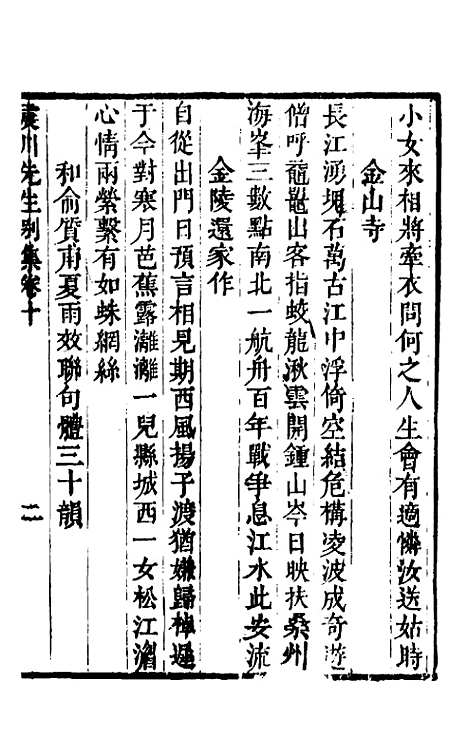 小女來相將牽衣問何之人生會有適憐汝送姑時
金山寺
長江湧塊石萬古江中浮倚空結危構凌波成奇遊
僧呼黿鼉山客指蛟龍湫雲開鍾山岑日映扶桑州
海峯三數點南北一航舟百年戰爭息江水此安流
金陵還家作
自從出門日預言相見期西風揚子渡猶嫌歸棹遲
于今對寒月芭蕉露灕灕一兒縣城西一女松江湄
心情兩縈繫有如蛛網絲
和俞質甫夏雨效聯句體三十韻
震川先生別集卷十
二